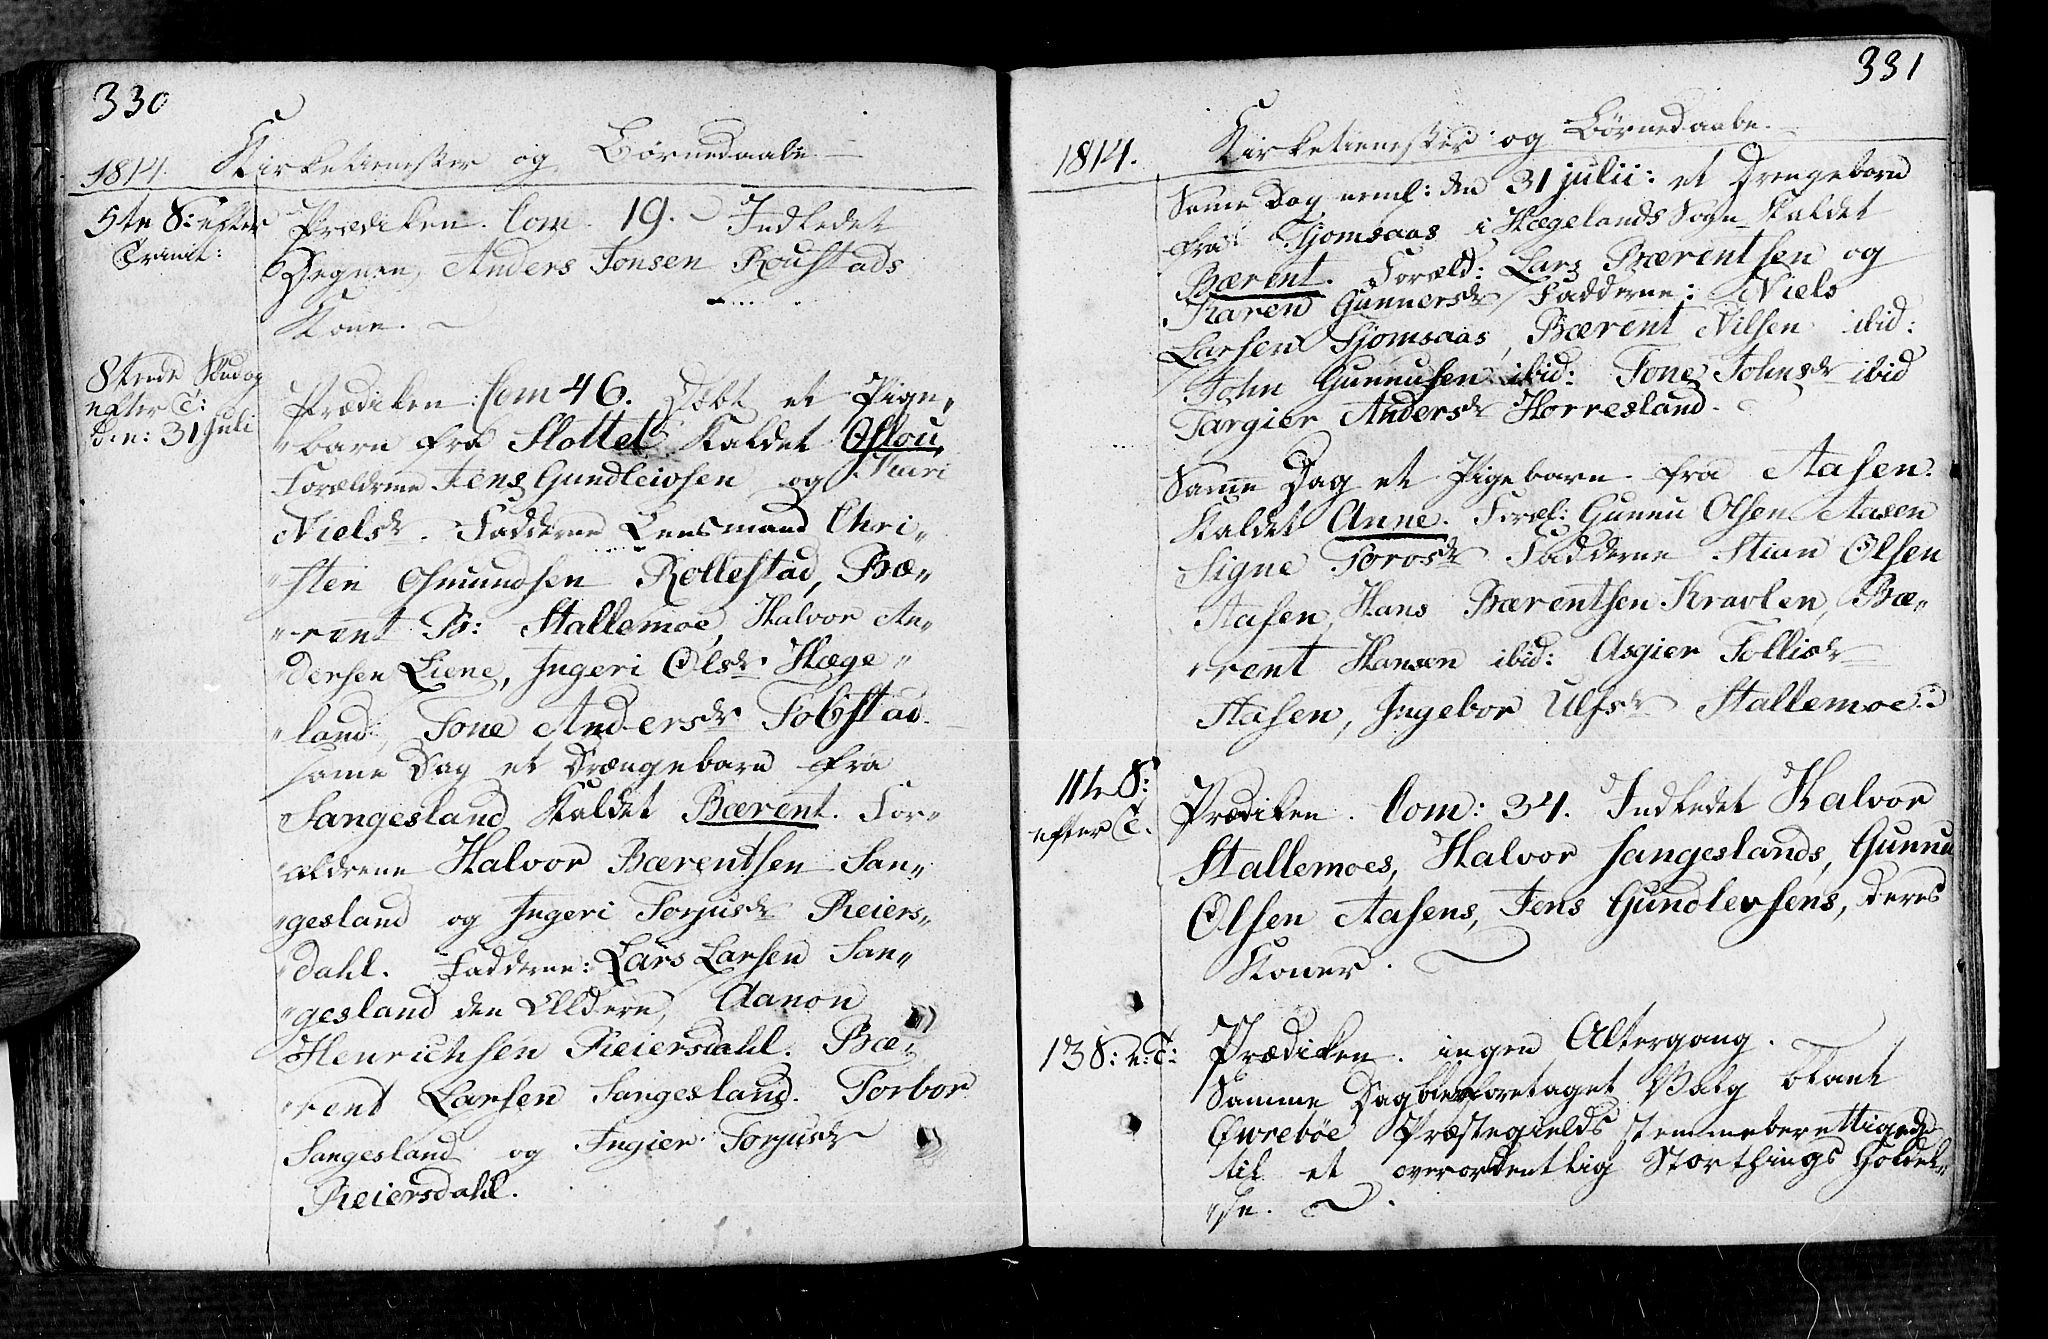 330
1814. Kirketienester og Børnedaabe
5te S: efter
Trinit:
Prædiken. Com. 19. Indledet
Degnen, Anders Jonsen Roustads
Kone.
8tende Sondag
efter T:
den: 31 Juli
Prædiken: Com 46. Døbt et Pige„
„barn fra Slottet Kaldet Oslou,
Forældrene Jens Gundleivsen og Siuri
Nielsdr. Fadderne Lensmand Chri„
„sten Osmundsen Rollestad, Bæ„
„rent B: Stallemoe, Halvor An„
„dersen Liene, Ingeri Olsdr Hæge„
„land, Tone Andersdr Tobstad.
same Dag et Drængebarn fra
Sangesland Kaldet Bærent. For„
„ældrene Halvor Bærentsen San„
„gesland og Ingeri Torjusdr Reiers„
„dahl. Fadderne: Lars Larsen San„
„gesland den Eldere, Aanon
Henrichsen Reiersdahl. Bæ„
„rent Larsen Sangesland. Torbor
Sangesland og Ingier Torjusdr
Reiersdahl.
331
1814. Kirketienester og Børnedaabe.
Same Dag neml: den 31 julii: et Drengebarn
fra Tjomsaas i Hægelands Sogn Kaldet
Bærent. Foræld: Lars Bærentsen og
Karen Gunnersdr Fadderne: Niels
Larsen Tjomsaas, Bærent Nilsen ibid:
John Gunnusen ibid: Tone Johnsdr ibid
Targier Andersdr Horresland.
Same Dag et Pigebarn fra Aasen.
Kaldet Anne. Foræl: Gunnu Olsen Aasen
Signe Torosdr Fadderne Stian Olsen
Aasen, Hans Bærentsen Kravlen, Bæ„
„rent Hansen ibid: Asgier Tollisdr
Aasen, Ingebor Ulfsdr Stallemoe.
11te S:
efter T.
Prædiken. Com: 34. Indledet Halvor
Stallemoes, Halvor Sangeslands, Gunnu
Olsen Aasens, Jens Gundlevsens, deres
Koner.
13 S: e: T:
Prædiken. ingen Altergang.
Samme Dag blev foretaget Valg blant
Øwrebøe Præstegields stemmeberettigede
til et overordentlig Storthings Holdel„
„se.